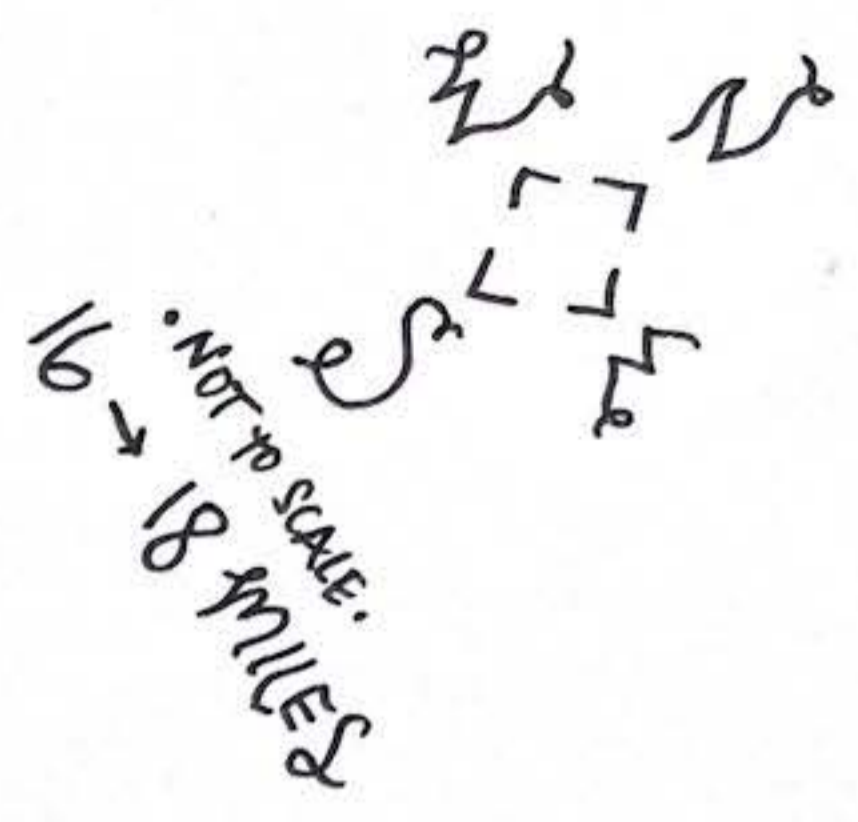 W
N
S
E
• NOT TO SCALE.
16 → 18 MILES